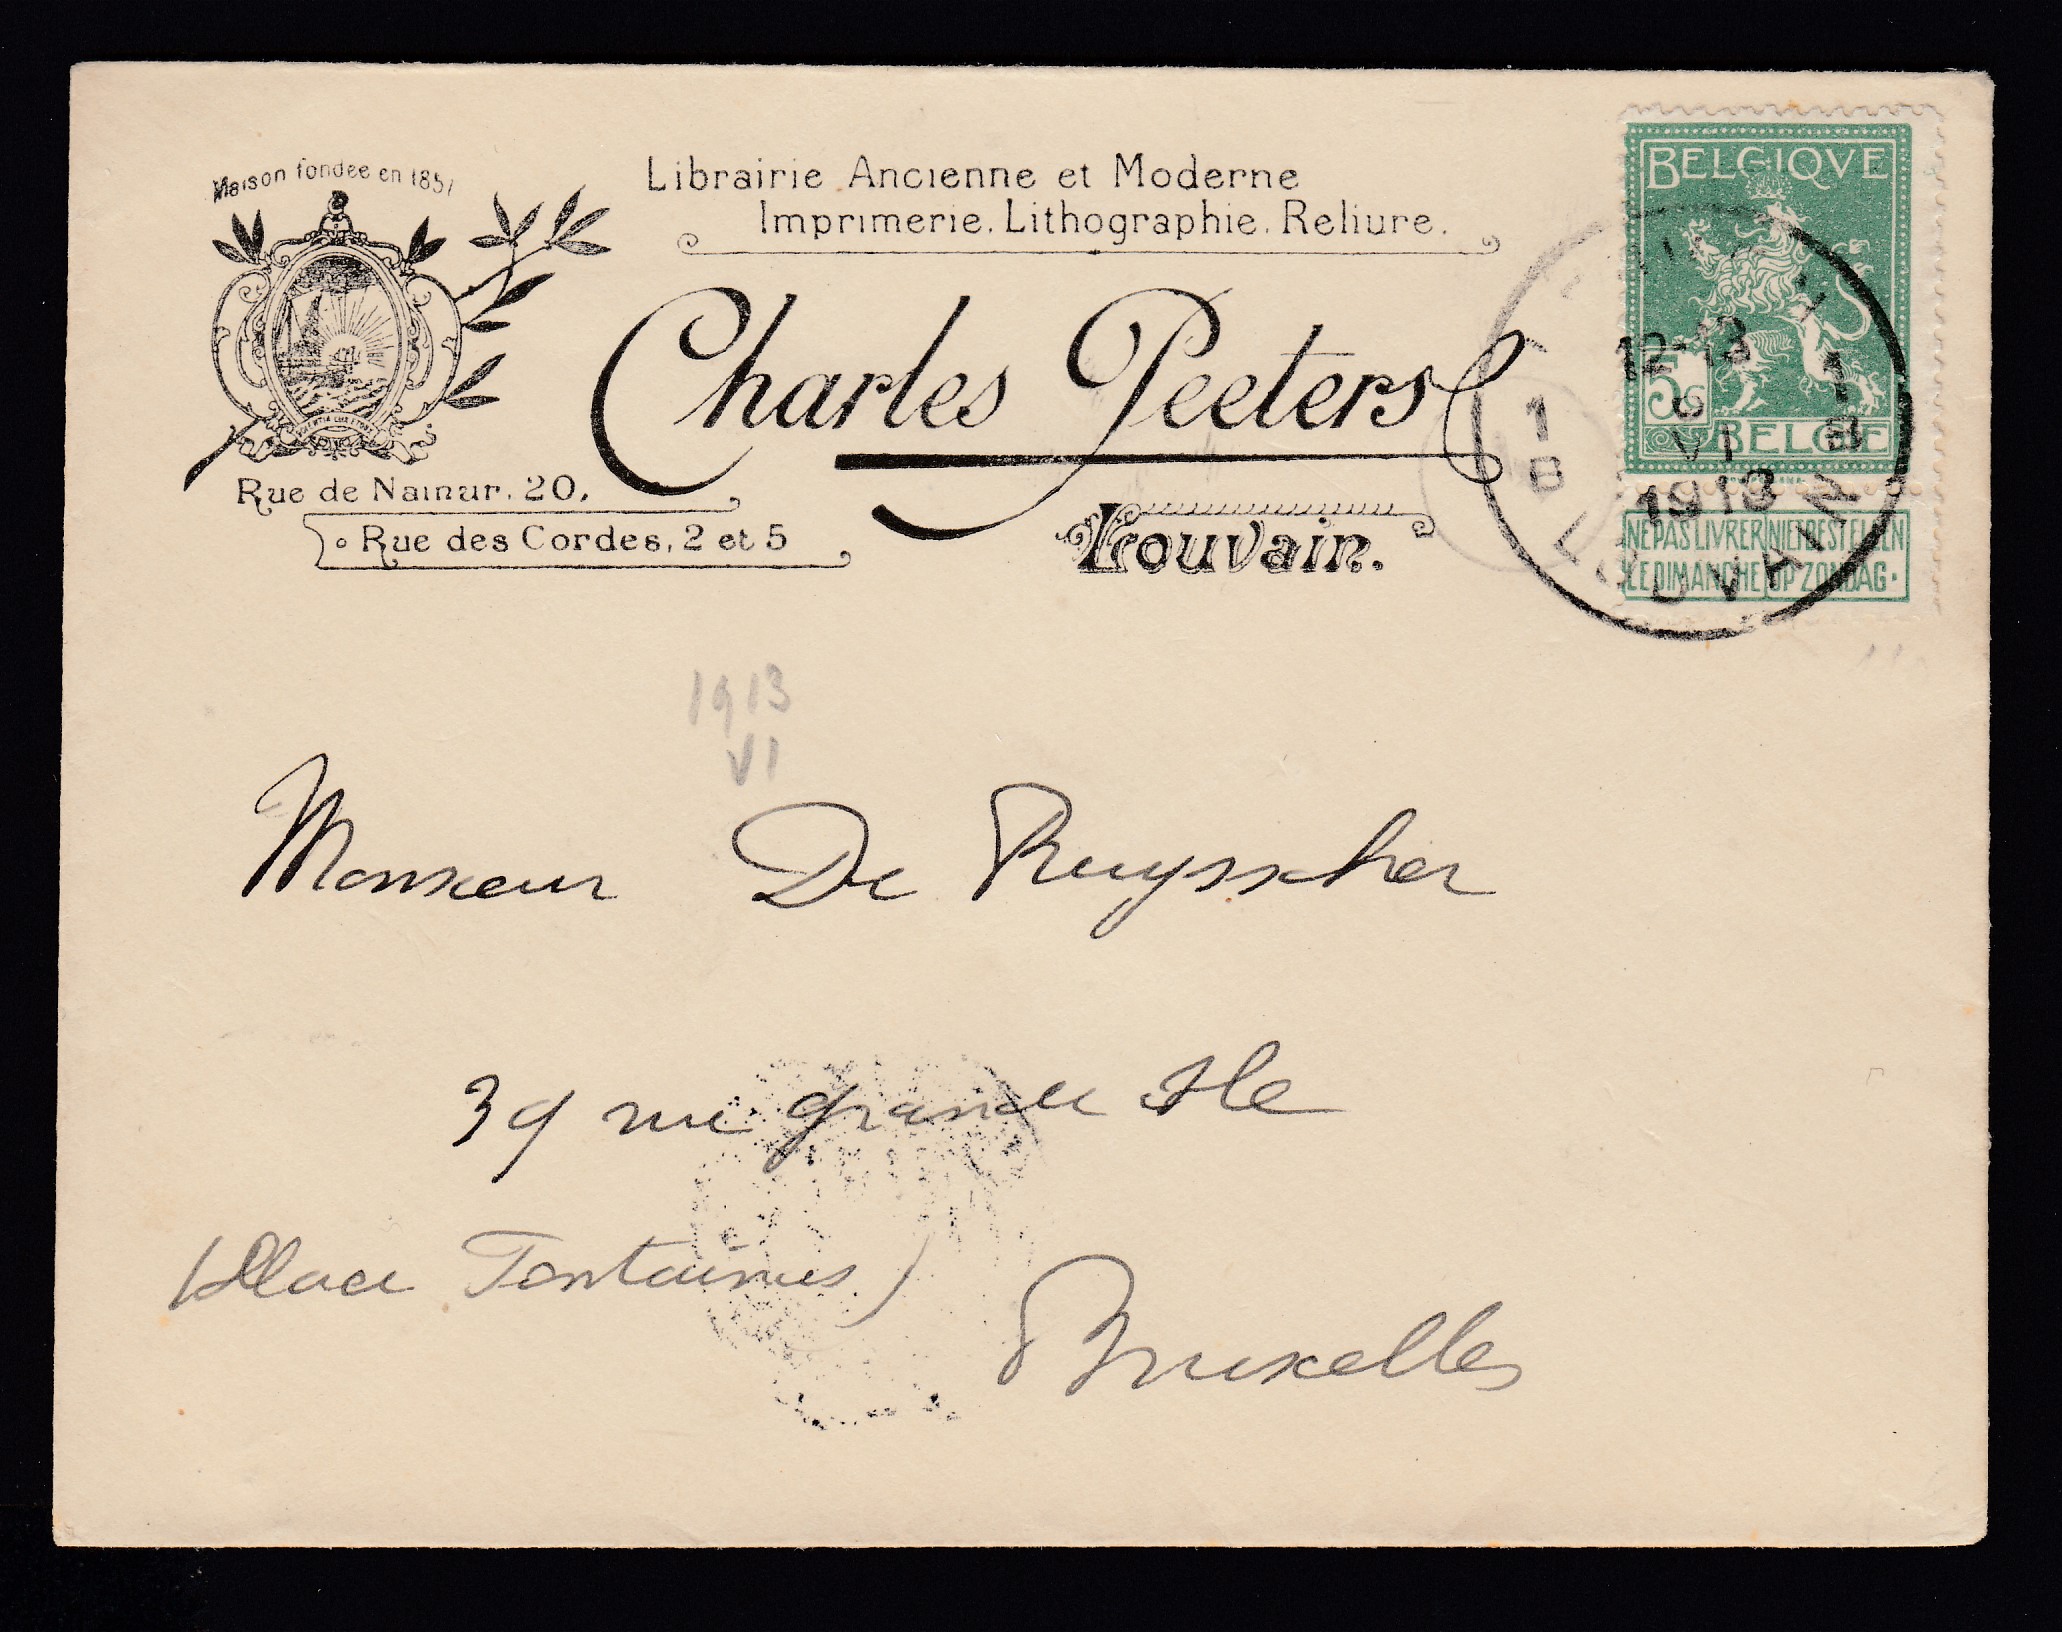 Maison fondée en 1857
Librairie Ancienne et Moderne
Imprimerie. Lithographie. Reliure.
Charles Peeters
Rue de Namur. 20,
Rue des Cordes, 2 et 5
Louvain.
BELGIQVE
5c
BELGIË
NE PAS LIVRER NIET BESTELLEN
LE DIMANCHE OP ZONDAG.
12-13
6
VI
1913
1 B
1 B
LOUVAIN
1913
VI
Monsieur De Ruysscher
39 rue grande Ile
(Place Fontainas)
Bruxelles